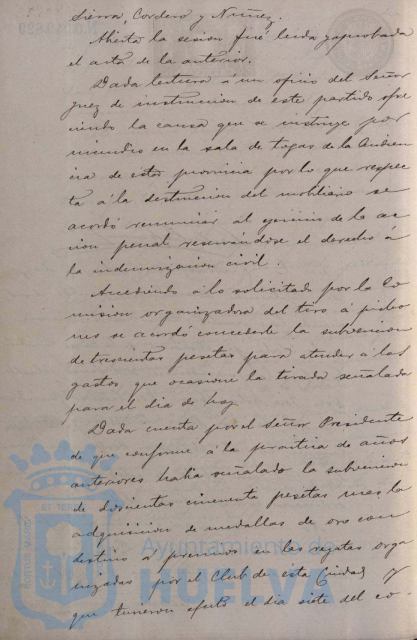 Sierra, Cordero y Núñez.
Abierta la sesion fué leida y aprobada
el acta de la anterior.
Dada lectura á un oficio del Señor
Juez de instruccion de este partido ofre
ciendo la causa que se instruye por
incendio en la sala de togas de la Audien
cia de esta provincia por lo que respec
ta á la destruccion del mobiliario se
acordó renunciar al ejercicio de la ac
cion penal reservandose el derecho á
la indemnizacion civil.
Accediendo á lo solicitado por la Co
mision organizadora del tiro á picho
nes se acordó concederle la subvencion
de trescientas pesetas para atender á los
gastos que ocasione la tirada señalada
para el dia de hoy
Dada cuenta por el Señor Presidente
de que conforme á la practica de años
anteriores habia señalado la subvencion
de doscientas cincuenta pesetas para la
adquisicion de medallas de oro con
destino á premios en las regatas orga
nizadas por el Club de esta Ciudad y
que tuvieron efecto el dia siete del co-
Ayuntamiento de
HUELVA